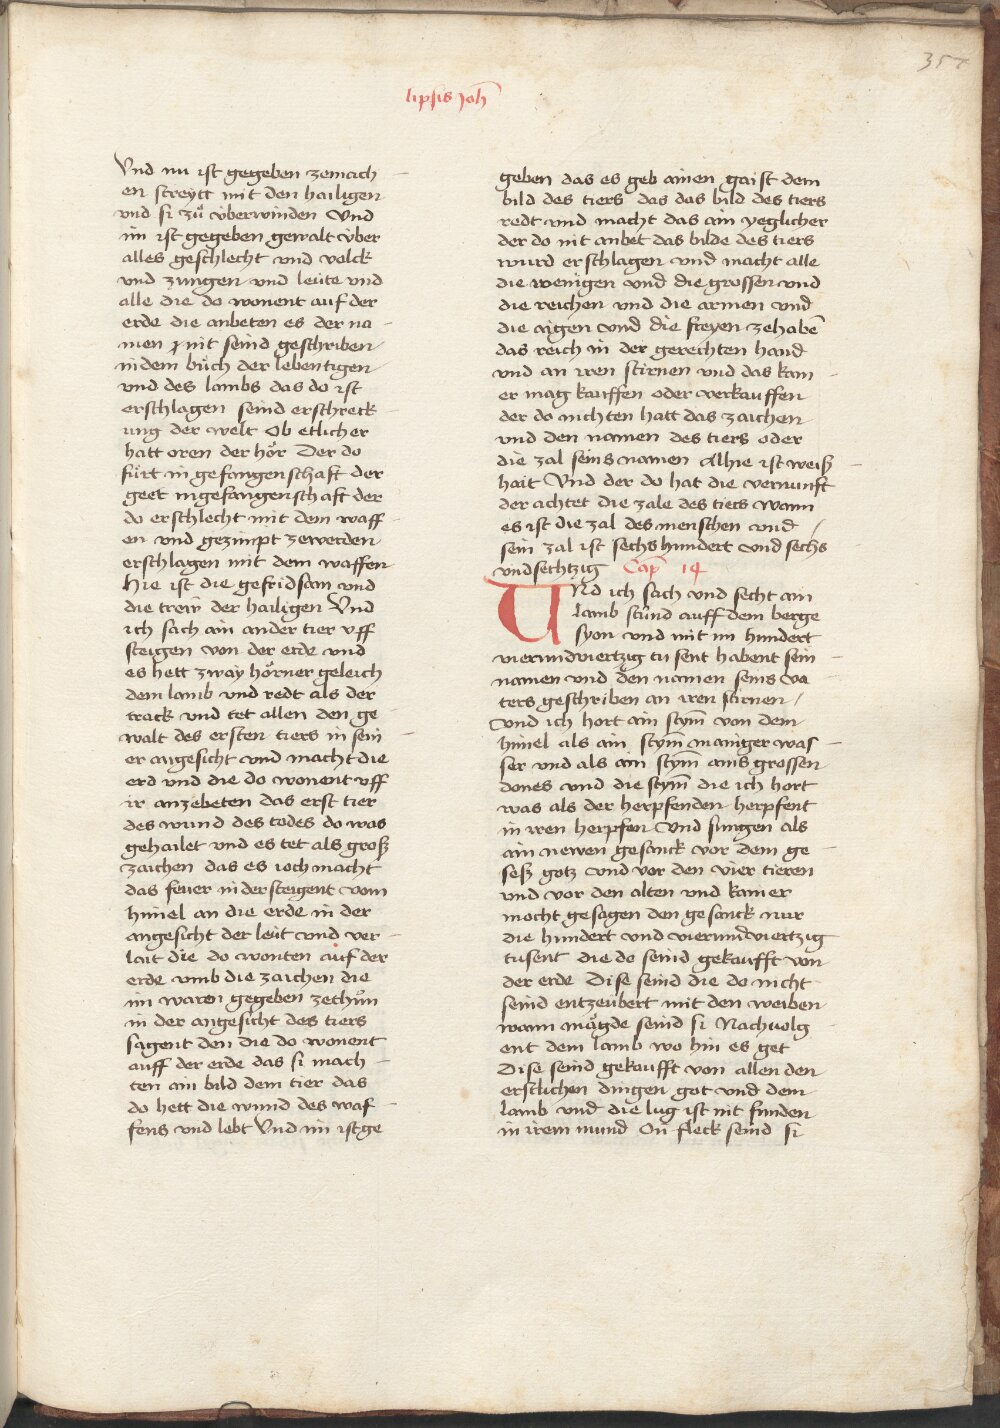 357
lipsis Joh̄
Vnd nu ist gegeben zemach
en streytt mit den hailigen
vnd si zů v̈berwinden Vnd
im ist gegeben gewalt v̈ber
alles geschlecht vnd volck
vnd zungen vnd leüte vnd
alle die do wonent auf der
erde die anbeten es der na
men nit seind geschriben
in dem bůch der lebentigen
vnd des lambs das do ist
erschlagen seind erschreck
ung der welt Ob etlicher
hatt oren der hŏr Der do
fürt in gefangenschaft der
geet in gefangenschaft der
do erschlecht mit dem waff
en vnd gezimpt zewerden
erschlagen mit dem waffen
Hie ist die gefridsam vnd
die trew der hailigen Vnd
ich sach ain ander tier vff
steigen von der erde vnd
es hett zway hörner geleich
dem lamb vnd redt als der
track vnd tet allen den ge
walt des ersten tiers in sein
er angesicht vnd macht die
erd vnd die do wonent vff
ir anzebeten das erst tier
des wund des todes do was
gehailet vnd es tet als groß
zaichen das es ioch macht
das feuer nidersteigent vom
himel an die erde in der
angesicht der leüt vnd ver
lait die do wonten auf der
erde vmb die zaichen die
im waren gegeben zethůn
in der angesicht des tiers
sagent den die do wonent
auff der erde das si mach
ten ain bild dem tier das
do hett die wund des waf
fens vnd lebt Vnd im ist ge
geben das es geb ainen gaist dem
bild des tiers das das bild des tiers
redt vnd macht das ain yeglicher
der do nit anbet das bilde des tiers
wurd erschlagen vnd macht alle
die wenigen vnd die grossen vnd
die reichen vnd die armen vnd
die aigen vnd die freyen zehabē
das reich in der gerechten hand
vnd an iren stirnen vnd das kain
er mag kauffen oder verkauffen
der do nichten hatt das zaichen
vnd den namen des tiers oder
die zal seins namen Alhie ist weiß
hait Vnd der do hat die vernunft
der achtet die zale des tiers wann
es ist die zal des menschen vnd
sein zal ist sechshundert vnd sechs
vndsechtzig Cap̄ 14
VNd ich sach vnd secht ain
lamb stůnd auff dem berge
syon vnd mit im hundert
vierundviertzig tusent habent sein
namen vnd den namen seins va
ters geschriben an iren stirnen /
Vnd ich hort ain stym̄ von dem
himel als ain stym̄ maniger was
ser vnd als ain stym̄ ains grossen
dones vnd die stym̄ die ich hort
was als der herpfenden herpfent
in iren herpfen Vnd sungen als
ain newen gesanck vor dem ge
seß gotz vnd vor den vier tieren
vnd vor den alten vnd kainer
mocht gesagen den gesanck nur
die hundert vnd vierundviertzig
tusent die do seind gekaufft von
der erde Dise seind die do nicht
seind entzeübert mit den weiben
wann mägde seind si Nachuolg
ent dem lamb wo hin es get
Dise seind gekaufft von allen den
erstlichen dingen got vnd dem
lamb vnd die lug ist nit funden
in irem mund On̄ fleck seind si